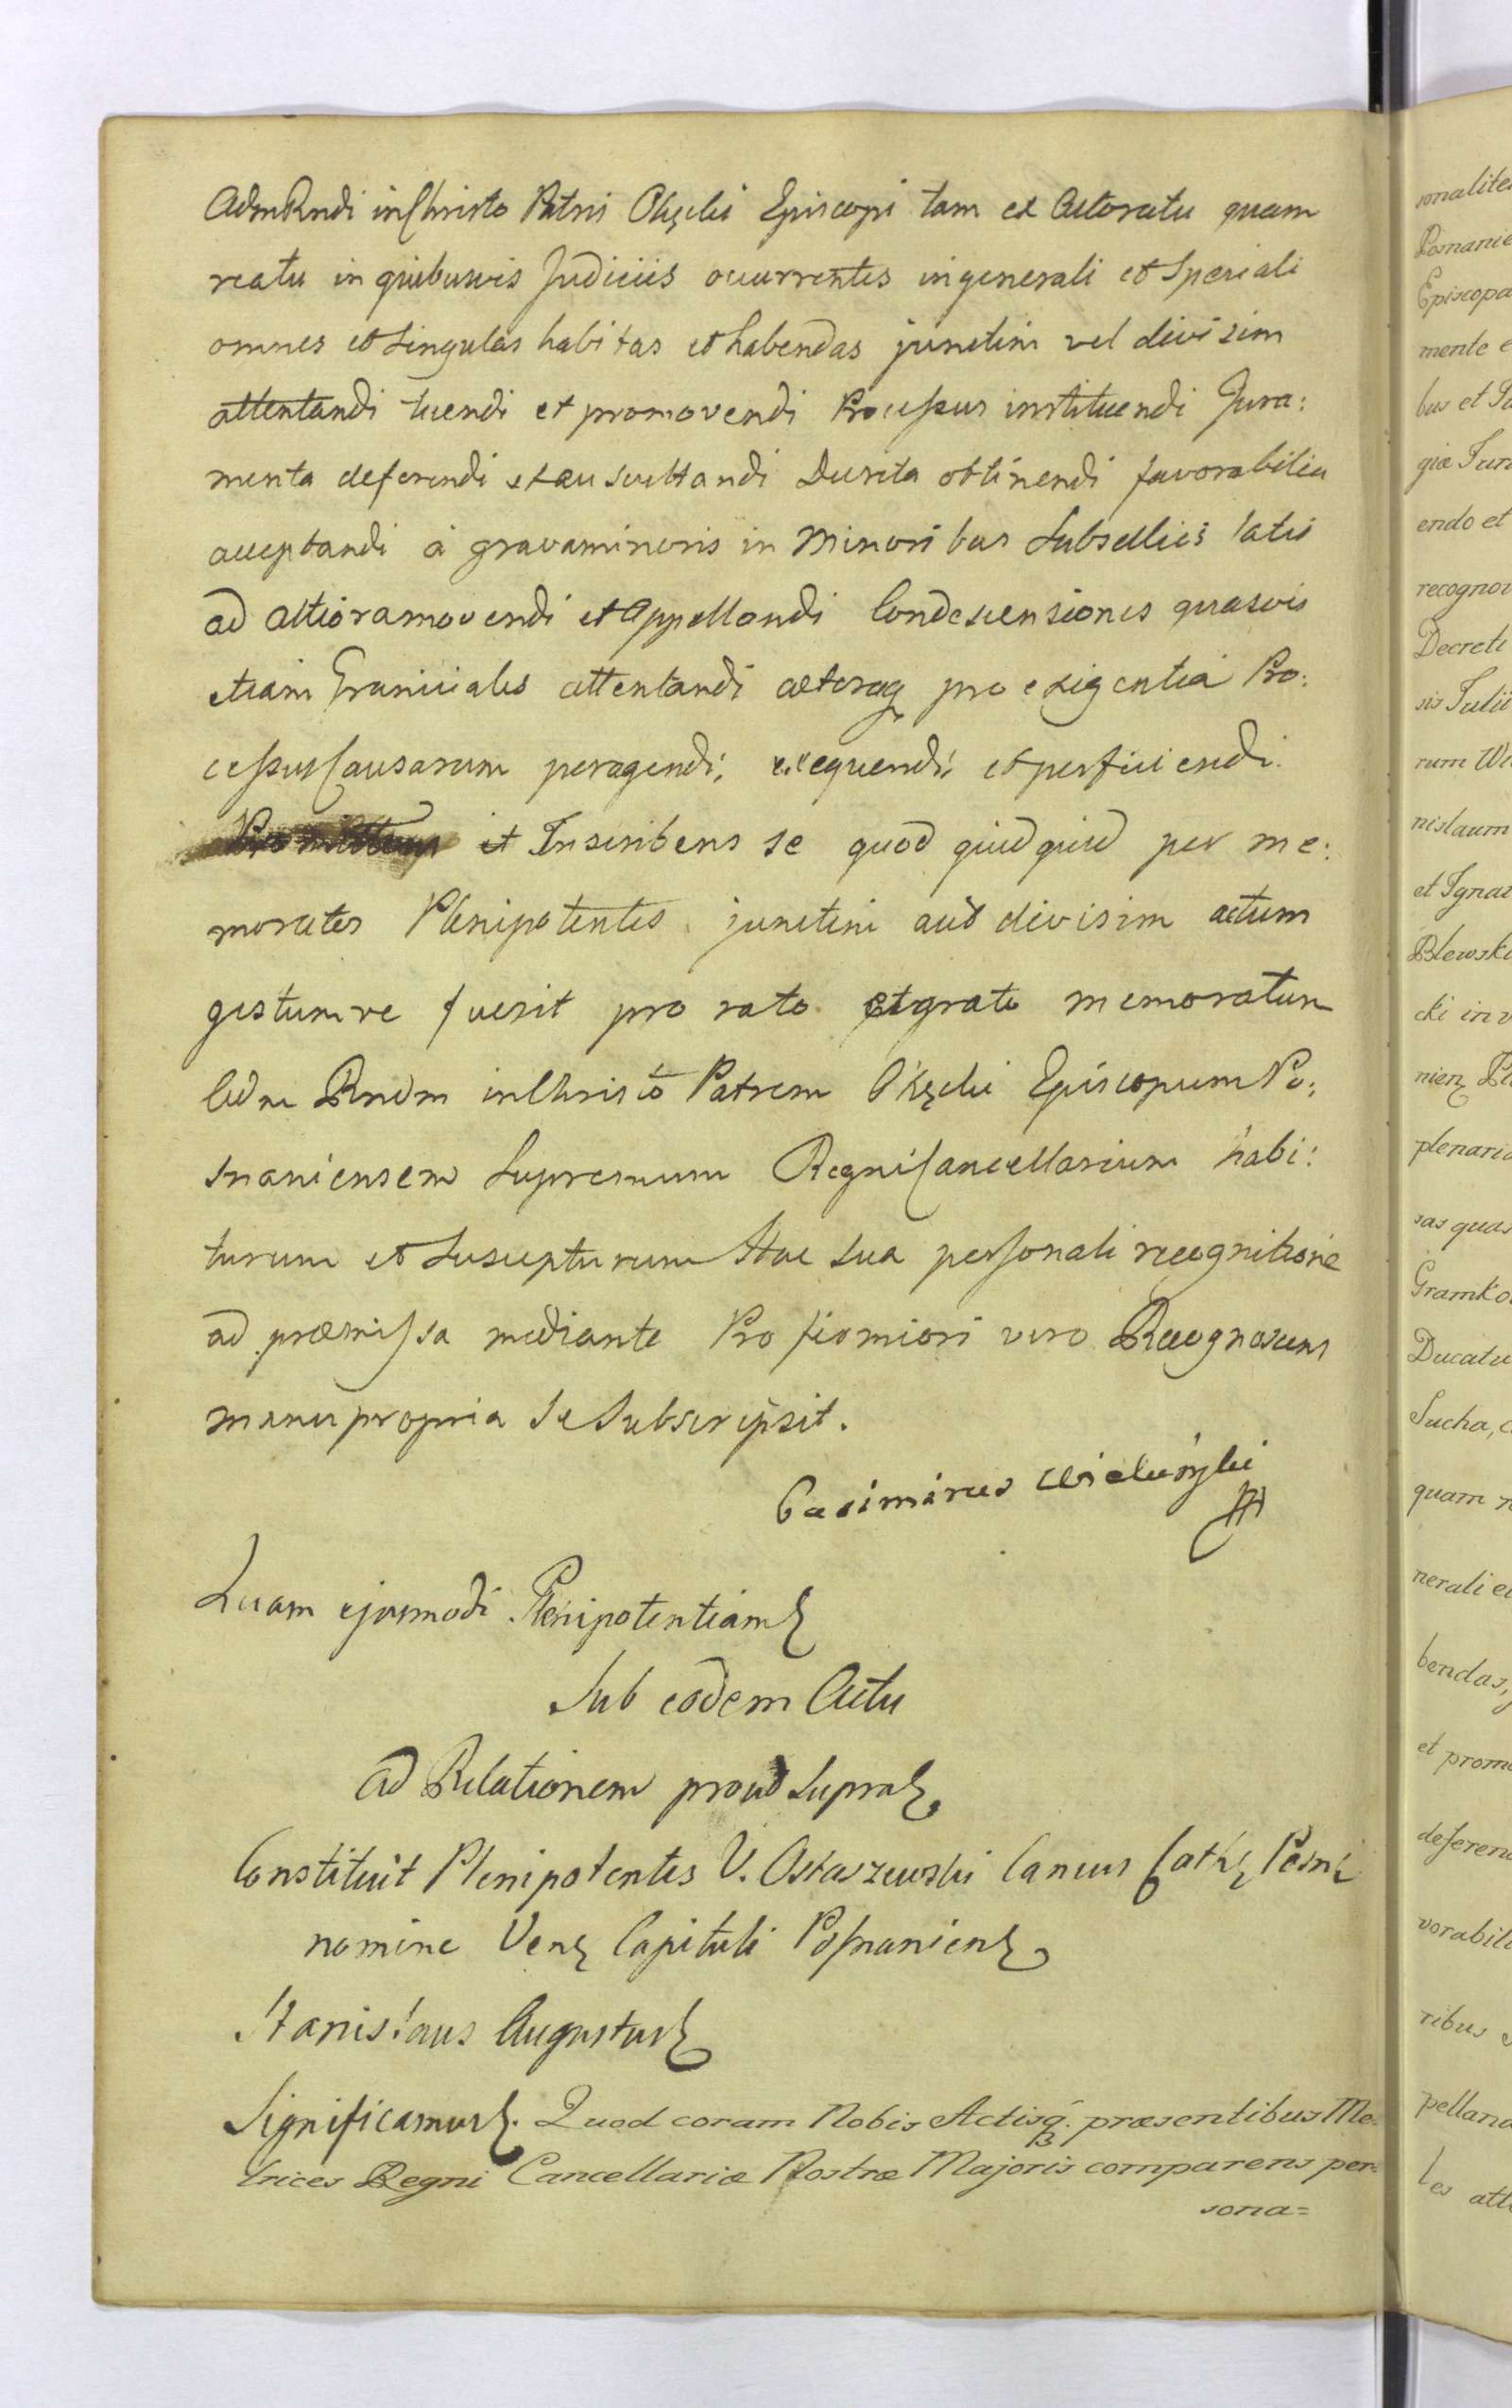 Adm Rndi in Christo Patris Okęcki Episcopi tam ex Actoratu quam
reatu in quibusvis Judiciis ocurrentes in generali et Speciali
omnes et Singulas habitas et habendas junctim vel divisim
attentandi tuendi et promovendi Processus instituendi Jura:
menta deferendi et auscultandi Decreta obtinendi favorabilia
acceptandi à gravaminoris in Minoribus Subselliis latis
ad altiora movendi et Appellandi Condescensiones quasvis
etiam Graniciales attentandi cæteraq pro exigentia Pro:
cessus Causarum peragendi, exequendi, et perficiendi.
Promittens et Inscribens se quod quidquid per me:
moratos Plenipotentes junctim aut divisim actum
gestumve fuerit pro rato et grato memoratum
Cldm Rndm in Christo Patrem Okęcki Episcopum Po:
snaniensem Supremum Regni Cancellarium habi:
turum et Suscepturum Hac Sua personali recognitione
ad præmissa mediante Pro firmiori vero Recognoscens
manu propria Se Subscripsit.
Casimirus
Quam ejusmodi Plenipotentiam
Sub eodem Actu
ad Relationem prout Supra
Constituit Plenipotentes V. Ostaszewski Cancus Cath Posn
nomine Ven Capituli Posnanien
Stanislaus Augustus
Significamus. Quod coram Nobis Actisq. præsentibus Me-
trices Regni Cancellariæ Nostræ Majoris comparens per-
sona=
onalite
Posnanie
Episcopa
mente e
bus et
giæ Jur
endo et
recognov
Decreti
sis Julii
rum
nislaum
et Ignat
cki in v
plenaria
sas quas
Ducatu
Sucha, c
quam
nerali e
bendas,
et prom
deferen
vorabil
ribus
pelland
les att